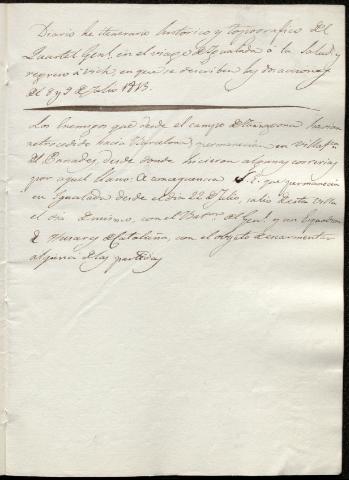 Diario he itenerario historico y topografico del
Quartel Genl. en el viage de Ygualada á la Salud, y
regreso á Vich, en que se describen las dos acciones
del 8 y 9 de Julio 1813.
Los Enemigos que desde el campo de Tarragona havian
retrocedido hacia Barcelona, permanecian en Villafca.
del Panades, desde donde hicieron algunas correrias
por aquel llano: A consequencia S.E. que permanecia
en Ygualada desde el dia 22 de Julio, salio de esta Villa
el dia del mismo, con el Batn. del Genl. y un Esquadron
de Husares de Cataluña, con el objeto de escarmentar
alguna de las partidas